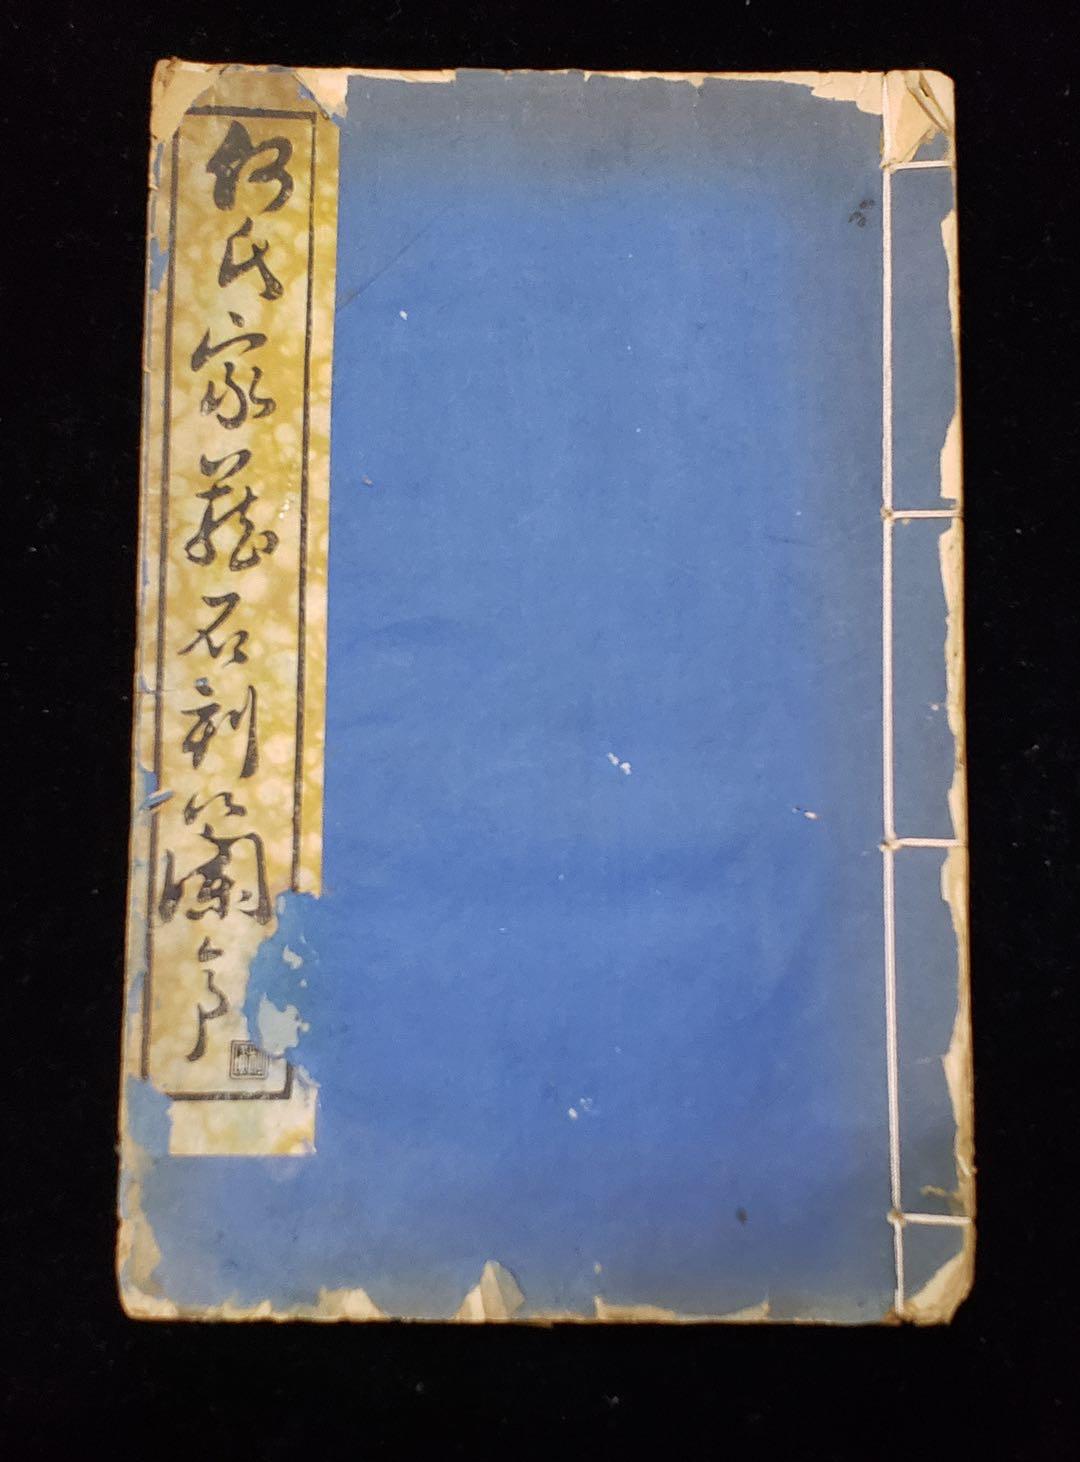 何氏家藏石刻蘭亭